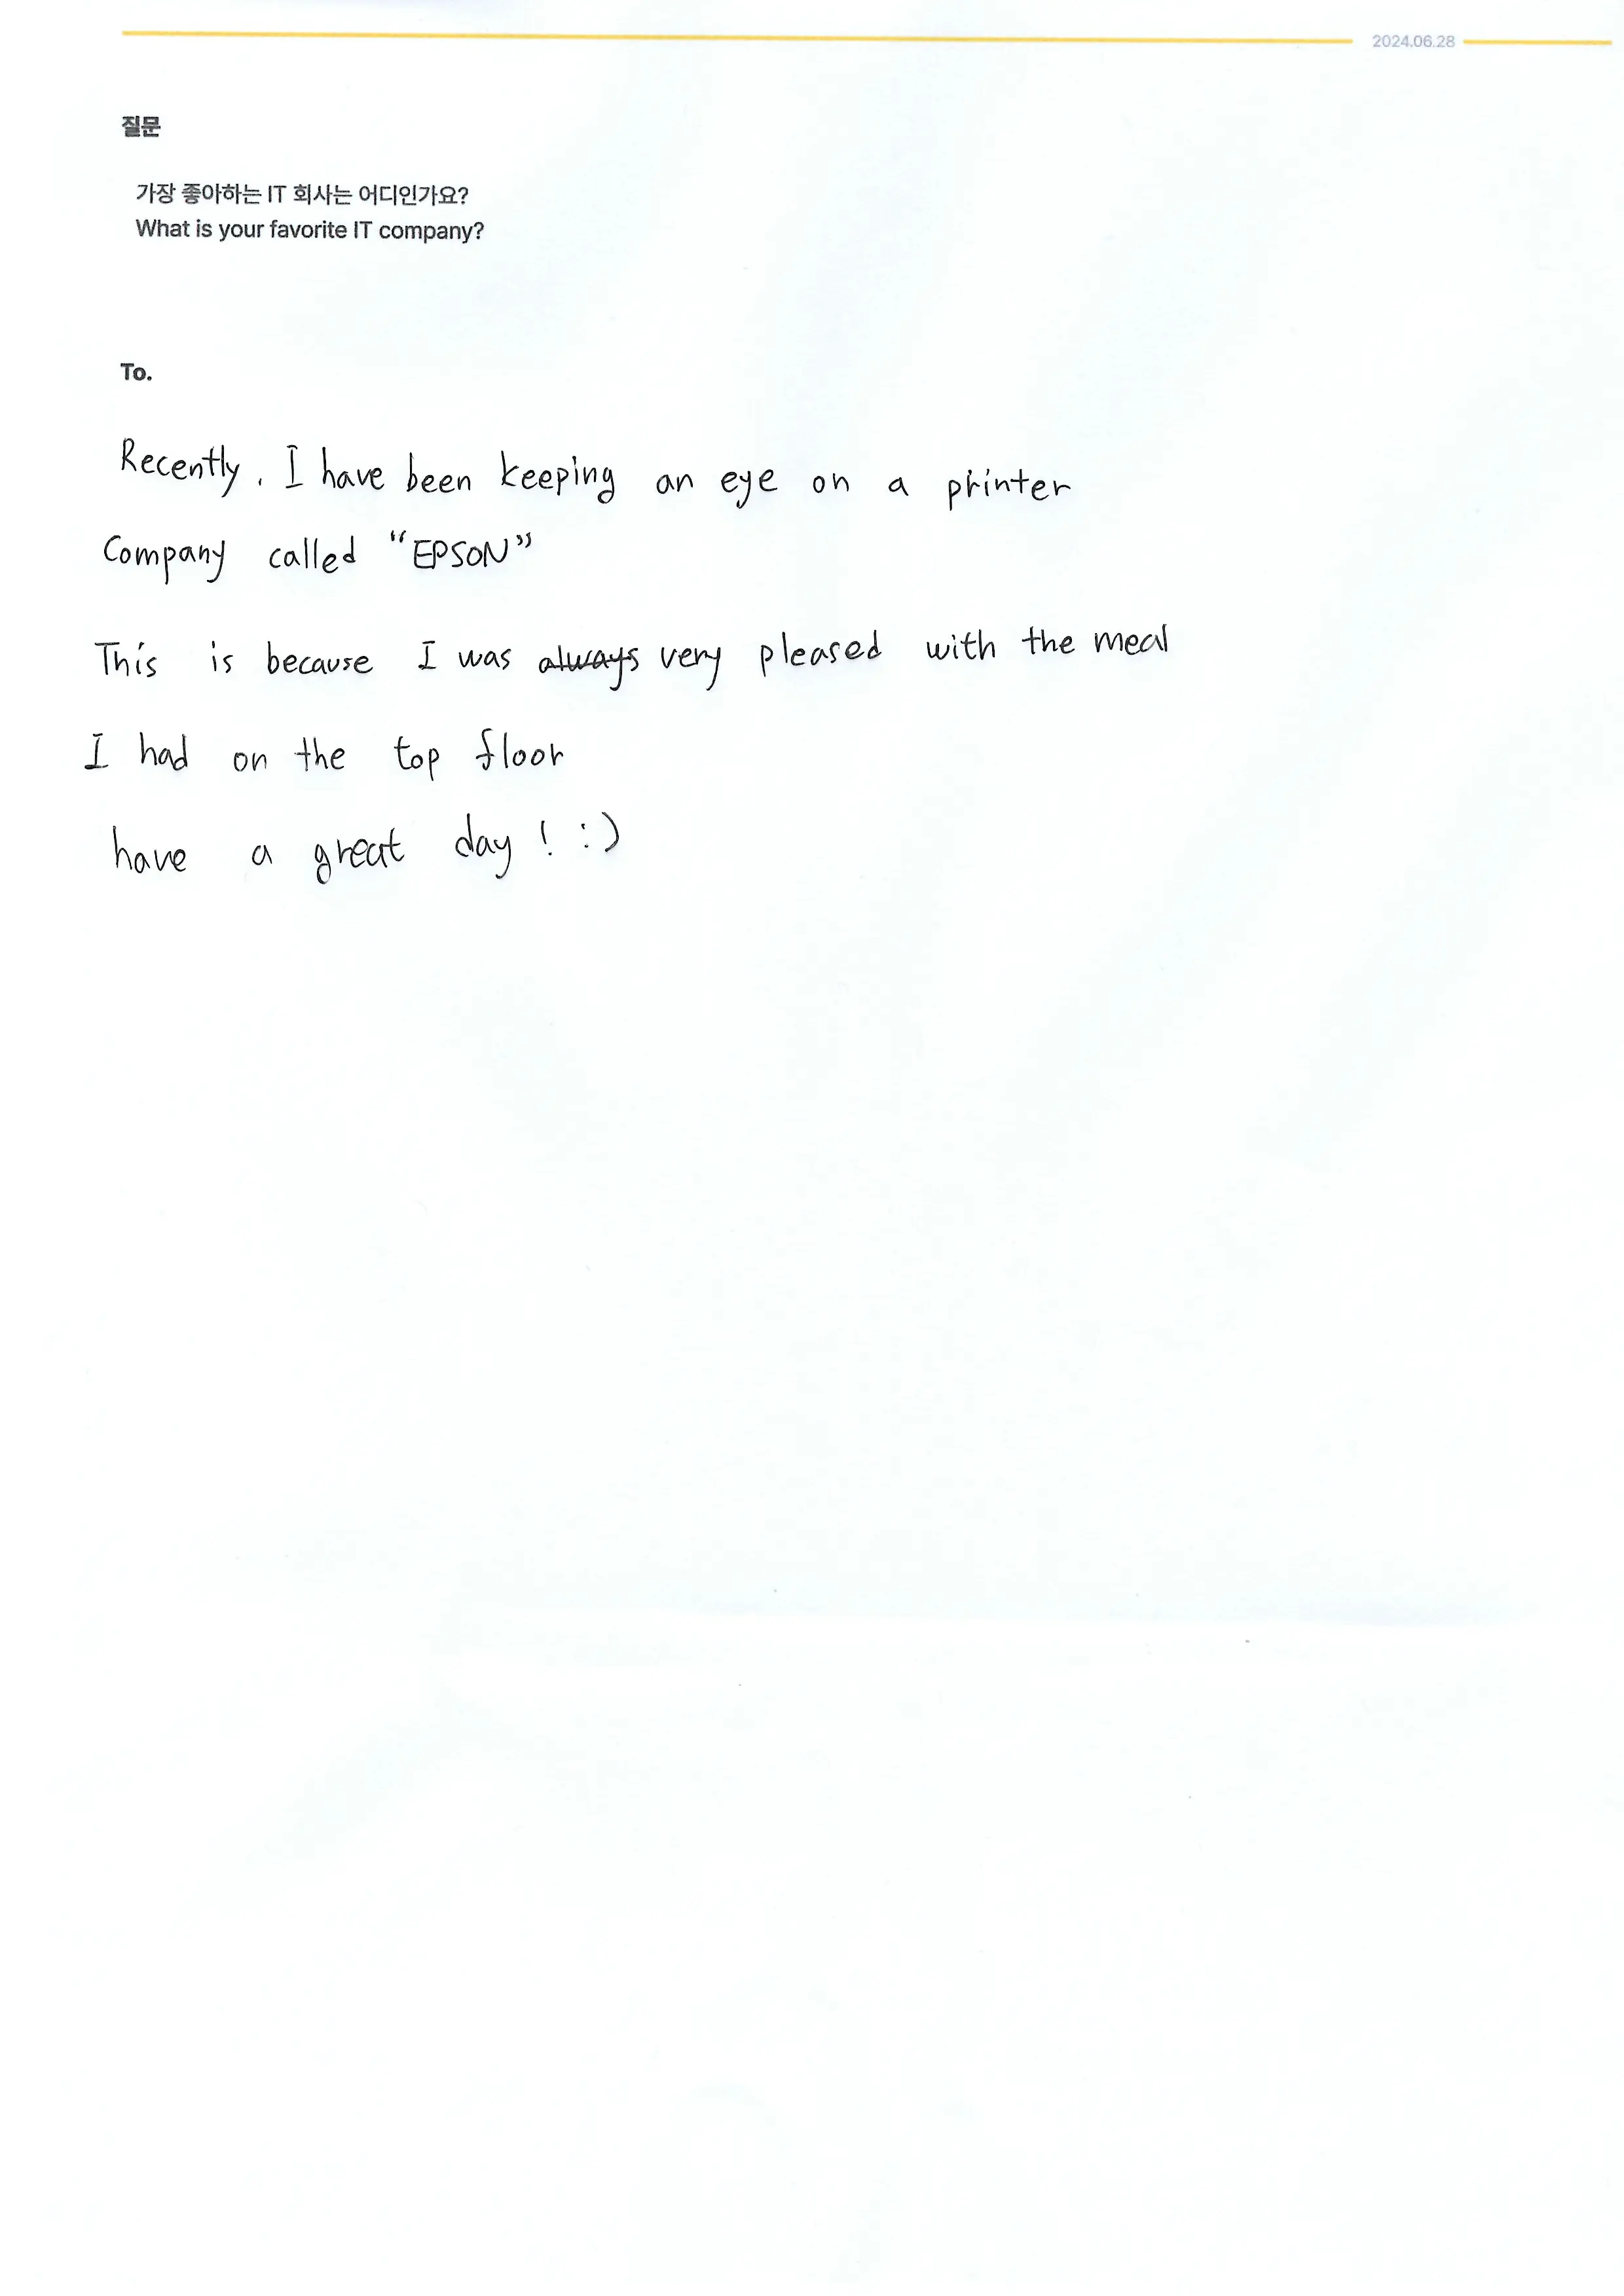 2024.06.28
질문
가장 좋아하는 IT 회사는 어디인가요?
What is your favorite IT company?
To.
Recently, I have been keeping an eye on a printer
Company called "EPSON"
This is because I was always very pleased with the meal
I had on the top floor
have a great day! :)